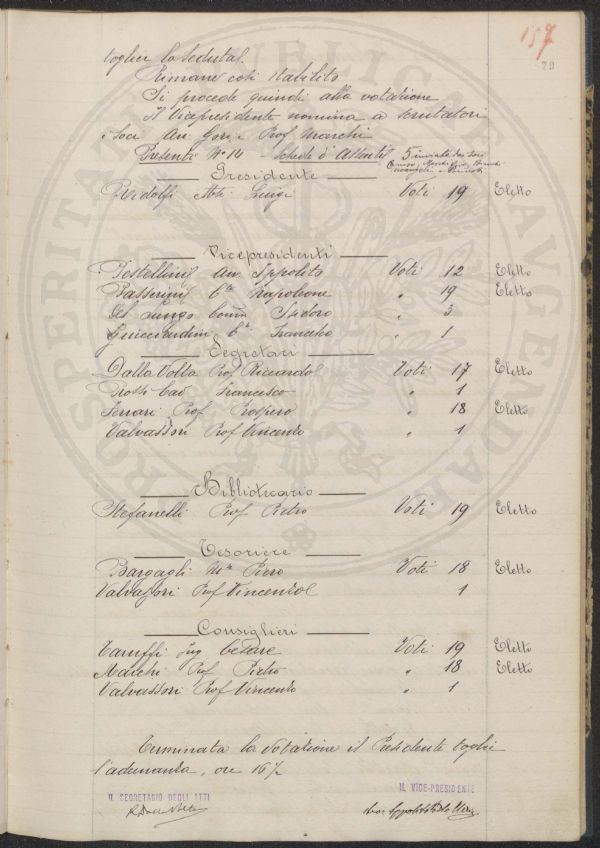 157
79
toglier la seduta.
Rimane così stabilito
Si procede quindi alla votazione
Il Vicepresidente nomina a scrutatori
i soci Avv. Gori e Prof Marchi
Presenti N° 14 - Schede d'Assenti 5 inviate dai soci
Presidente
Ridolfi Luigi Voti 19 Eletto
Vicepresidenti
Pestellini Avv. Ippolito Voti 12 Eletto
Passerini Cte Napoleone " 19 Eletto
Del Lungo Comm Isidoro " 3
Guicciardini Cte Francesco " 1
Segretari
Dalla Volta Prof Riccardo Voti 17 Eletto
Cav Francesco " 1
Ferrari Prof Prospero " 18 Eletto
Valvassori Prof Vincenzo " 1
Bibliotecario
Stefanelli Prof Pietro Voti 19 Eletto
Tesoriere
Bargagli Mse Piero Voti 18 Eletto
Valvassori Prof Vincenzo 1
Consiglieri
Taruffi Ing Cesare Voti 19 Eletto
Marchi Prof Pietro " 18 Eletto
Valvassori Prof Vincenzo " 1
Terminata la votazione il Presidente toglie
l'adunanza, ore 16½
IL SEGRETARIO DEGLI ATTI
IL VICE-PRESIDENTE
PROSPERITATI PUBLICAE AVGENDAE